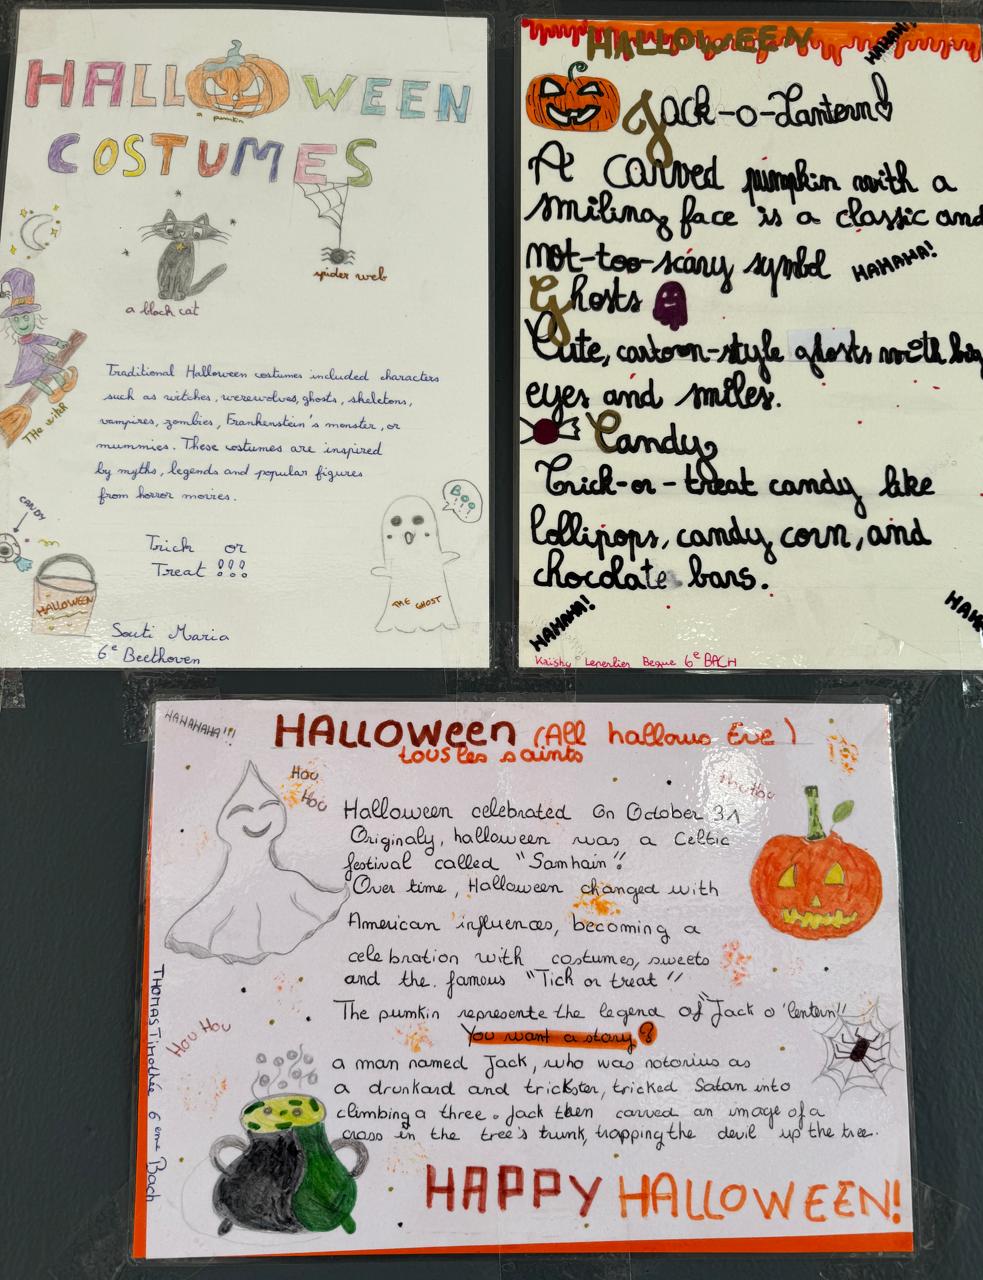 HALLOWEEN
a pumkin
COSTUMES
spider web
a black cat
THe witch
Traditional Halloween costumes included characters
such as witches, werewolves, ghosts, skeletons,
vampires, zombies, Frankenstein's monster, or
mummies. These costumes are inspired
by myths, legends and popular figures
from horror movies.
CANDY
BOO
!!!
Trick or
Treat !!!
HALLOWEEN
THE GHOST
Souti Maria
6e Beethoven
HALLOWEEN
HAHAHA!
Jack-o-Lantern!
A carved pumpkin with a
smiling face is a classic and
not-too-scary symbol
HAHAHA!
Ghosts
Cute, cartoon-style ghosts with big
eyes and smiles.
Candy
Trick-or-treat candy like
lollipops, candy corn, and
chocolate bars.
HAHAHA!
HAHA
Krishy Lenerlier Begue 6e BACH
HAHAHAHA!!!
HALLOWEEN (All hallows Eve)
tous les saints
HOU
HOU
Hou Hou
Halloween celebrated on October 31
Originaly, halloween was a Celtic
festival called "Samhain".
Over time, Halloween changed with
American influences, becoming a
celebration with costumes, sweets
and the famous "Tick or treat"
The pumkin represente the legend of "Jack o'lentern"
You want a story?
a man named Jack, who was notorius as
a drunkard and trickster, tricked Satan into
climbing a three. Jack then carved an image of a
cross in the tree's trunk, trapping the devil up the tree.
Hou Hou
THOMAS Timothée 6 eme Bach
HAPPY HALLOWEEN!